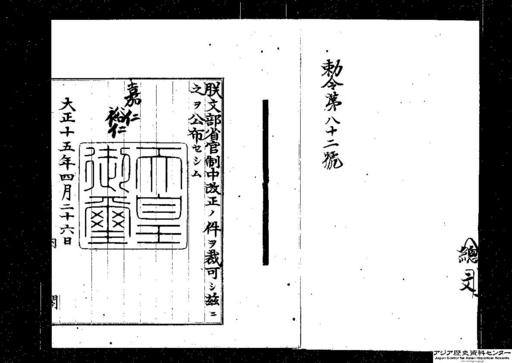 勅令第八十二號
總
文
朕文部省官制中改正ノ件ヲ裁可シ茲ニ
之ヲ公布セシム
嘉仁
裕仁
天皇
御璽
大正十五年四月二十六日
内閣
アジア歴史資料センター
Japan Center for Asian Historical Records